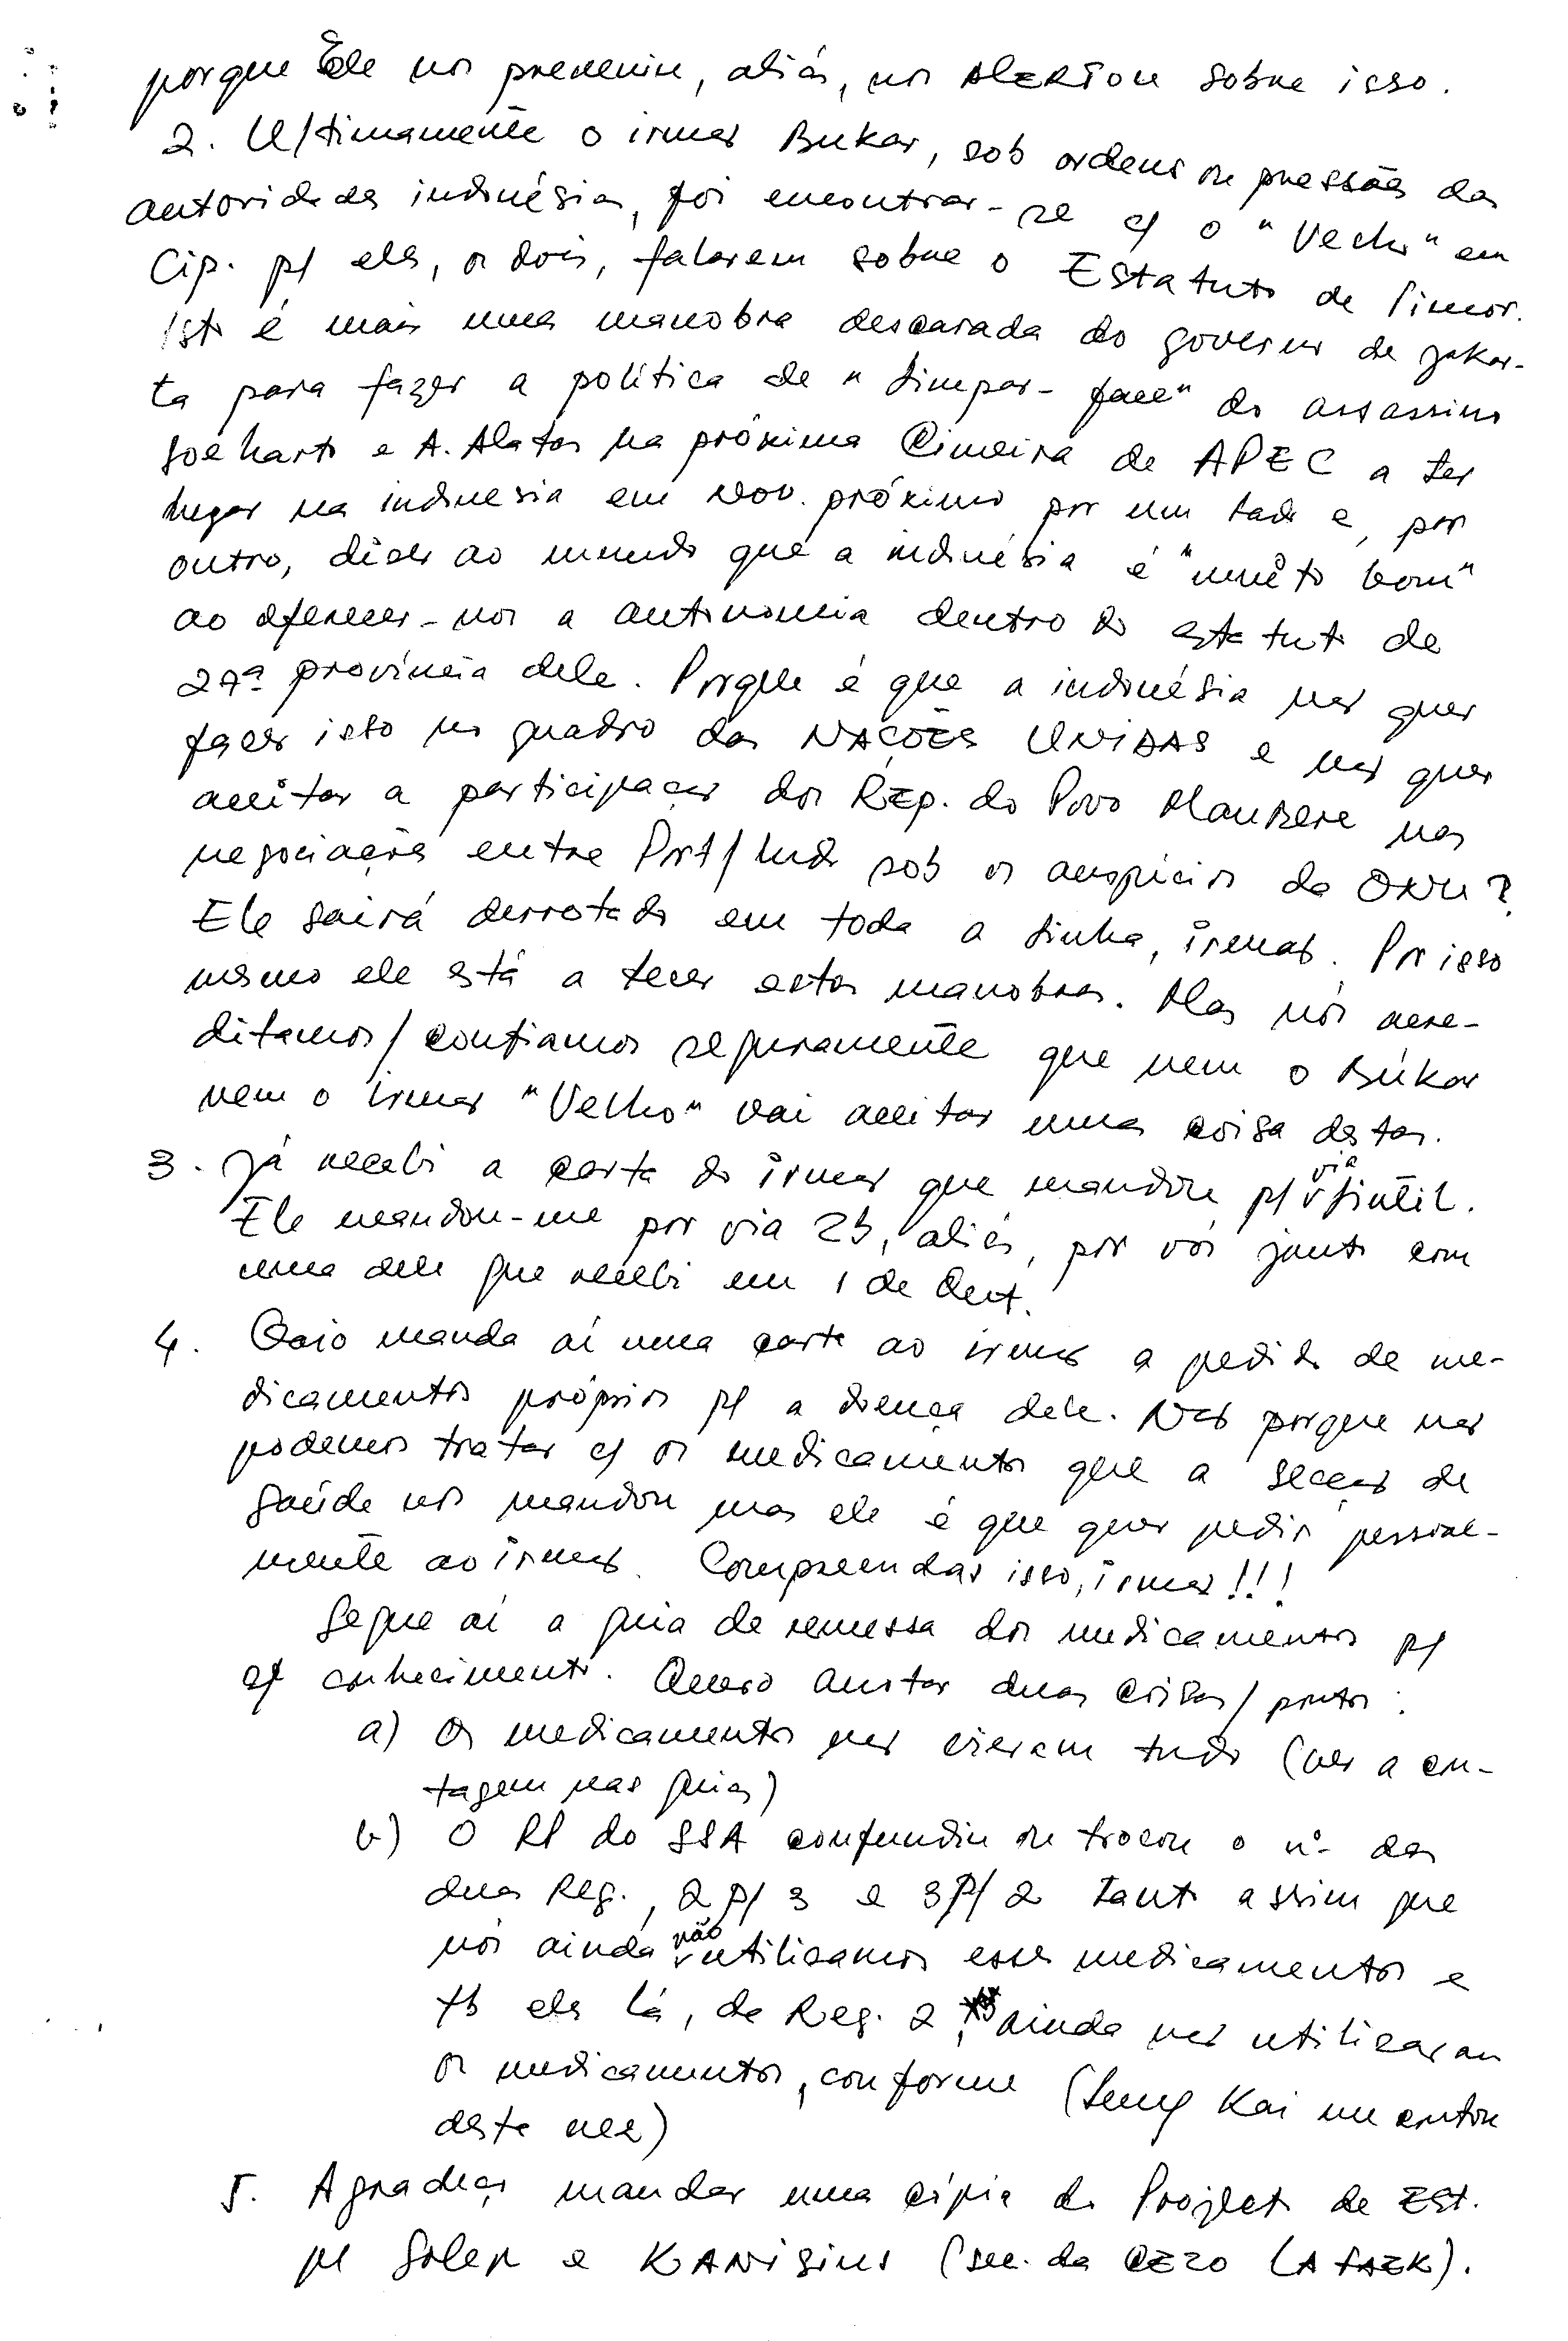 porque Ele nos preveniu, aliás, nos AlERTou sobre isso.
2. Ultimamente o irmão Bukar, sob ordens ou pressões das
autoridades indonésias, foi encontrar-se c/ o "Velho" em
Cip. p/ eles, os dois, falarem sobre o Estatuto de Timor.
Isto é mais uma manobra descarada do governo de Jakar-
ta para fazer a política de "limpar-face" do assassino
Soeharto e A. Alatas na próxima Cimeira de APEC a ter
lugar na indonesia em Nov. próximo por um lado e, por
outro, dizer ao mundo que a indonésia é "muito bom"
ao oferecer-nos a autonomia dentro do estatuto de
27ª província dele. Porque é que a indonésia não quer
fazer isto no quadro das NAÇÕES UNIDAS e não quer
aceitar a participação dos Rep. do Povo Maubere nas
negociações entre Port/Ind sob os auspícios da ONU?
Ele sairá derrotado em toda a linha, irmão. Por isso
mesmo ele está a tecer estas manobras. Mas nós acre-
ditamos/confiamos seguramente que nem o Búkar
nem o irmão "Velho" vai aceitar uma coisa destas.
3. Já recebi a carta do irmão que mandou p/ via Sintil.
Ele mandou-me por via 25, aliás, por vós junto com
uma dele que recebi em 1 de Out.
4. Oaio manda aí uma carta ao irmão a pedido de me-
dicamentos próprios p/ a doença dele. Não porque não
podemos tratar c/ os medicamentos que a secção de
saúde nos mandou mas ele é que quer pedir pessoal-
mente ao irmão. Compreendas isso, irmão!!!
Segue aí a guia de remessa dos medicamentos p/
o/ conhecimento. Quero anotar duas coisas/pontos:
a) Os medicamentos não vieram tudo (ver a con-
tagem nas guias)
b) O RP do SSA confundiu ou trocou o nº das
duas Reg., 2 p/ 3 e 3 p/ 2 tanto assim que
nós ainda não utilizamos esses medicamentos e
tb eles lá, de Reg. 2, ainda não utilizaram
os medicamentos, conforme (Leny Kai me contou
desta vez)
5. Agradeço mandar uma cópia do Projecto de Est.
p/ Soler e KANISIUS (sec. da CEZO (A FAEK).